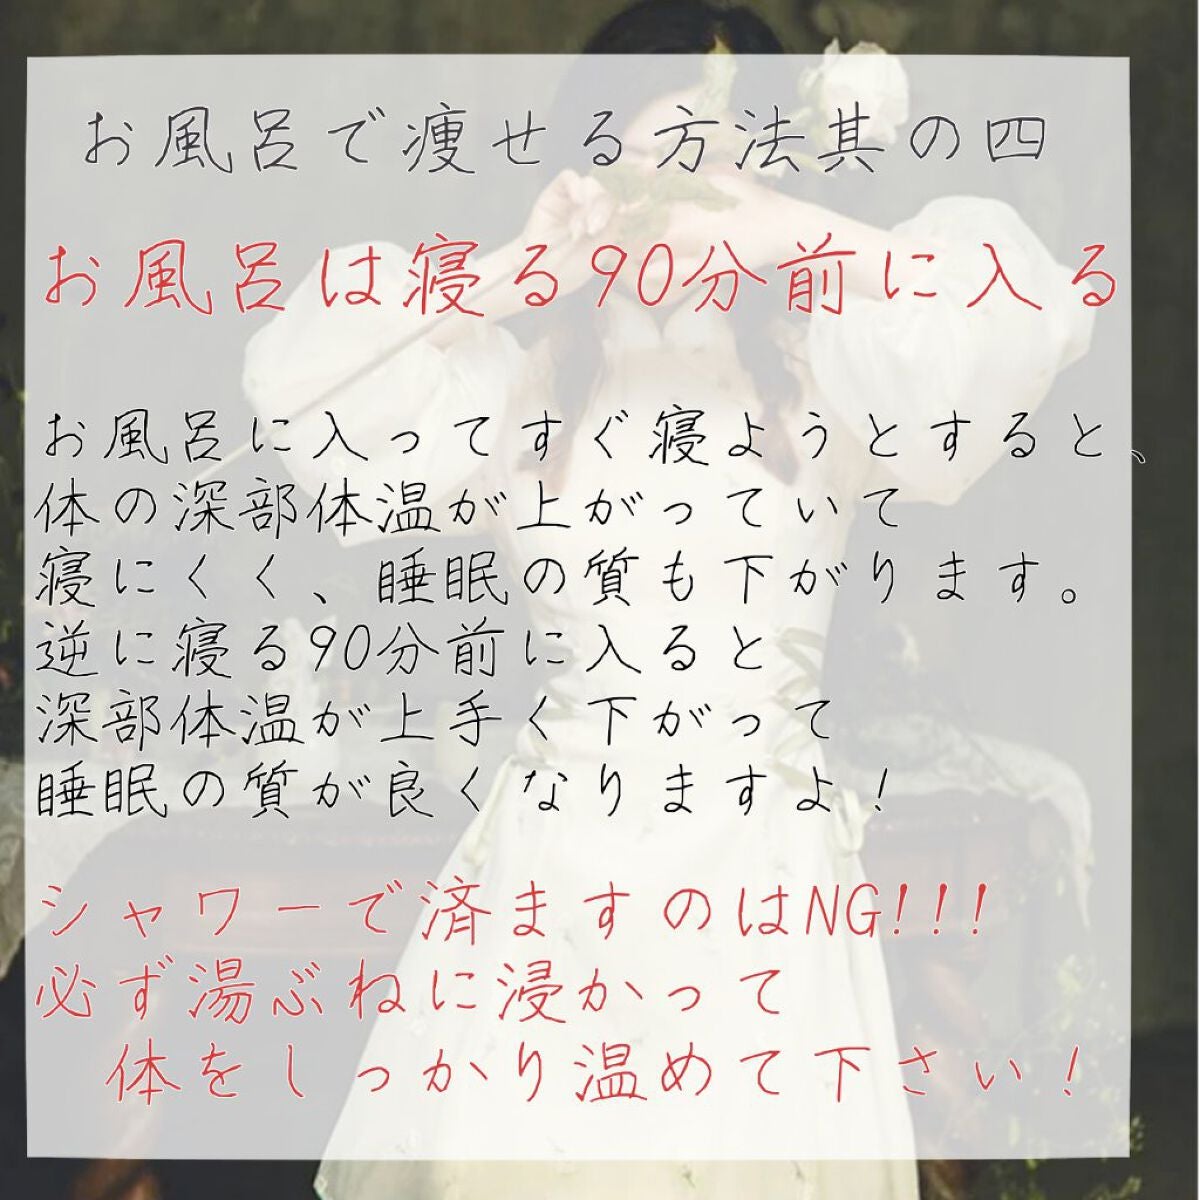 お風呂で痩せる方法其の四
お風呂は寝る90分前に入る
お風呂に入ってすぐ寝ようとすると、
体の深部体温が上がっていて
寝にくく、睡眠の質も下がります。
逆に寝る90分前に入ると
深部体温が上手く下がって
睡眠の質が良くなりますよ！
シャワーで済ますのはNG!!!
必ず湯ぶねに浸かって
体をしっかり温めて下さい！